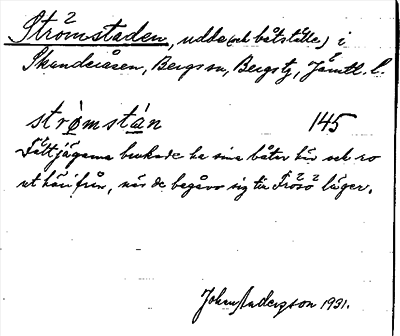 Strömstaden, udde (och båtställe) i
Skanderåsen, Bergs sn, Bergs tg, Jämtl. l.
strömstán 145
Fältjägarna brukade ha sina båtar här och ro
ut härifrån, när de begåvo sig till Frösö läger.
Johan Anderson 1931.